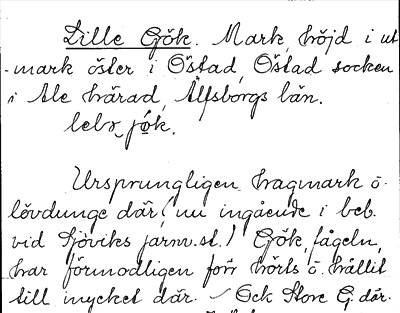 Lille Gök. Mark, höjd i ut-
mark öster i Östad, Östad socken
i Ale härad, Älfsborgs län.
jök.
Ursprungligen hagmark o.
lövdunge där (nu ingående i beb.
vid Sjöviks järnv.st.) Gök, fågeln,
har förmodligen förr hörts o. hållit
till mycket där. Ock Store G. där.